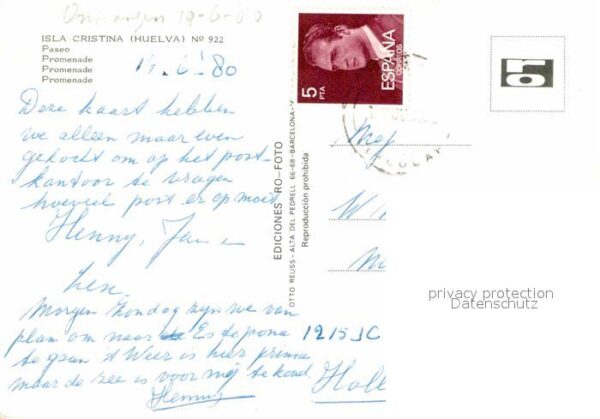 Ontvangen 19-6-80
ISLA CRISTINA (HUELVA) Nº 922
Paseo
Promenade
Promenade
Promenade
14.6.'80
Deze kaart hebben
we alleen maar even
gekocht om op het post
kantoor te vragen
hoeveel post er op moet
Henny, Jan
Morgen Zondag zijn we van
plan om naar Estepona
te gaan 't Weer is hier prima
maar de zee is voor mij te koud
Henny
EDICIONES RO-FOTO
OTTO REUSS-ALTA DEL PEDRELL 66-68-BARCELONA-
Reproducción prohibida
5
PTA
ESPAÑA
CORREOS
Mej
W
1215 JC
Hol
privacy protection
Datenschutz